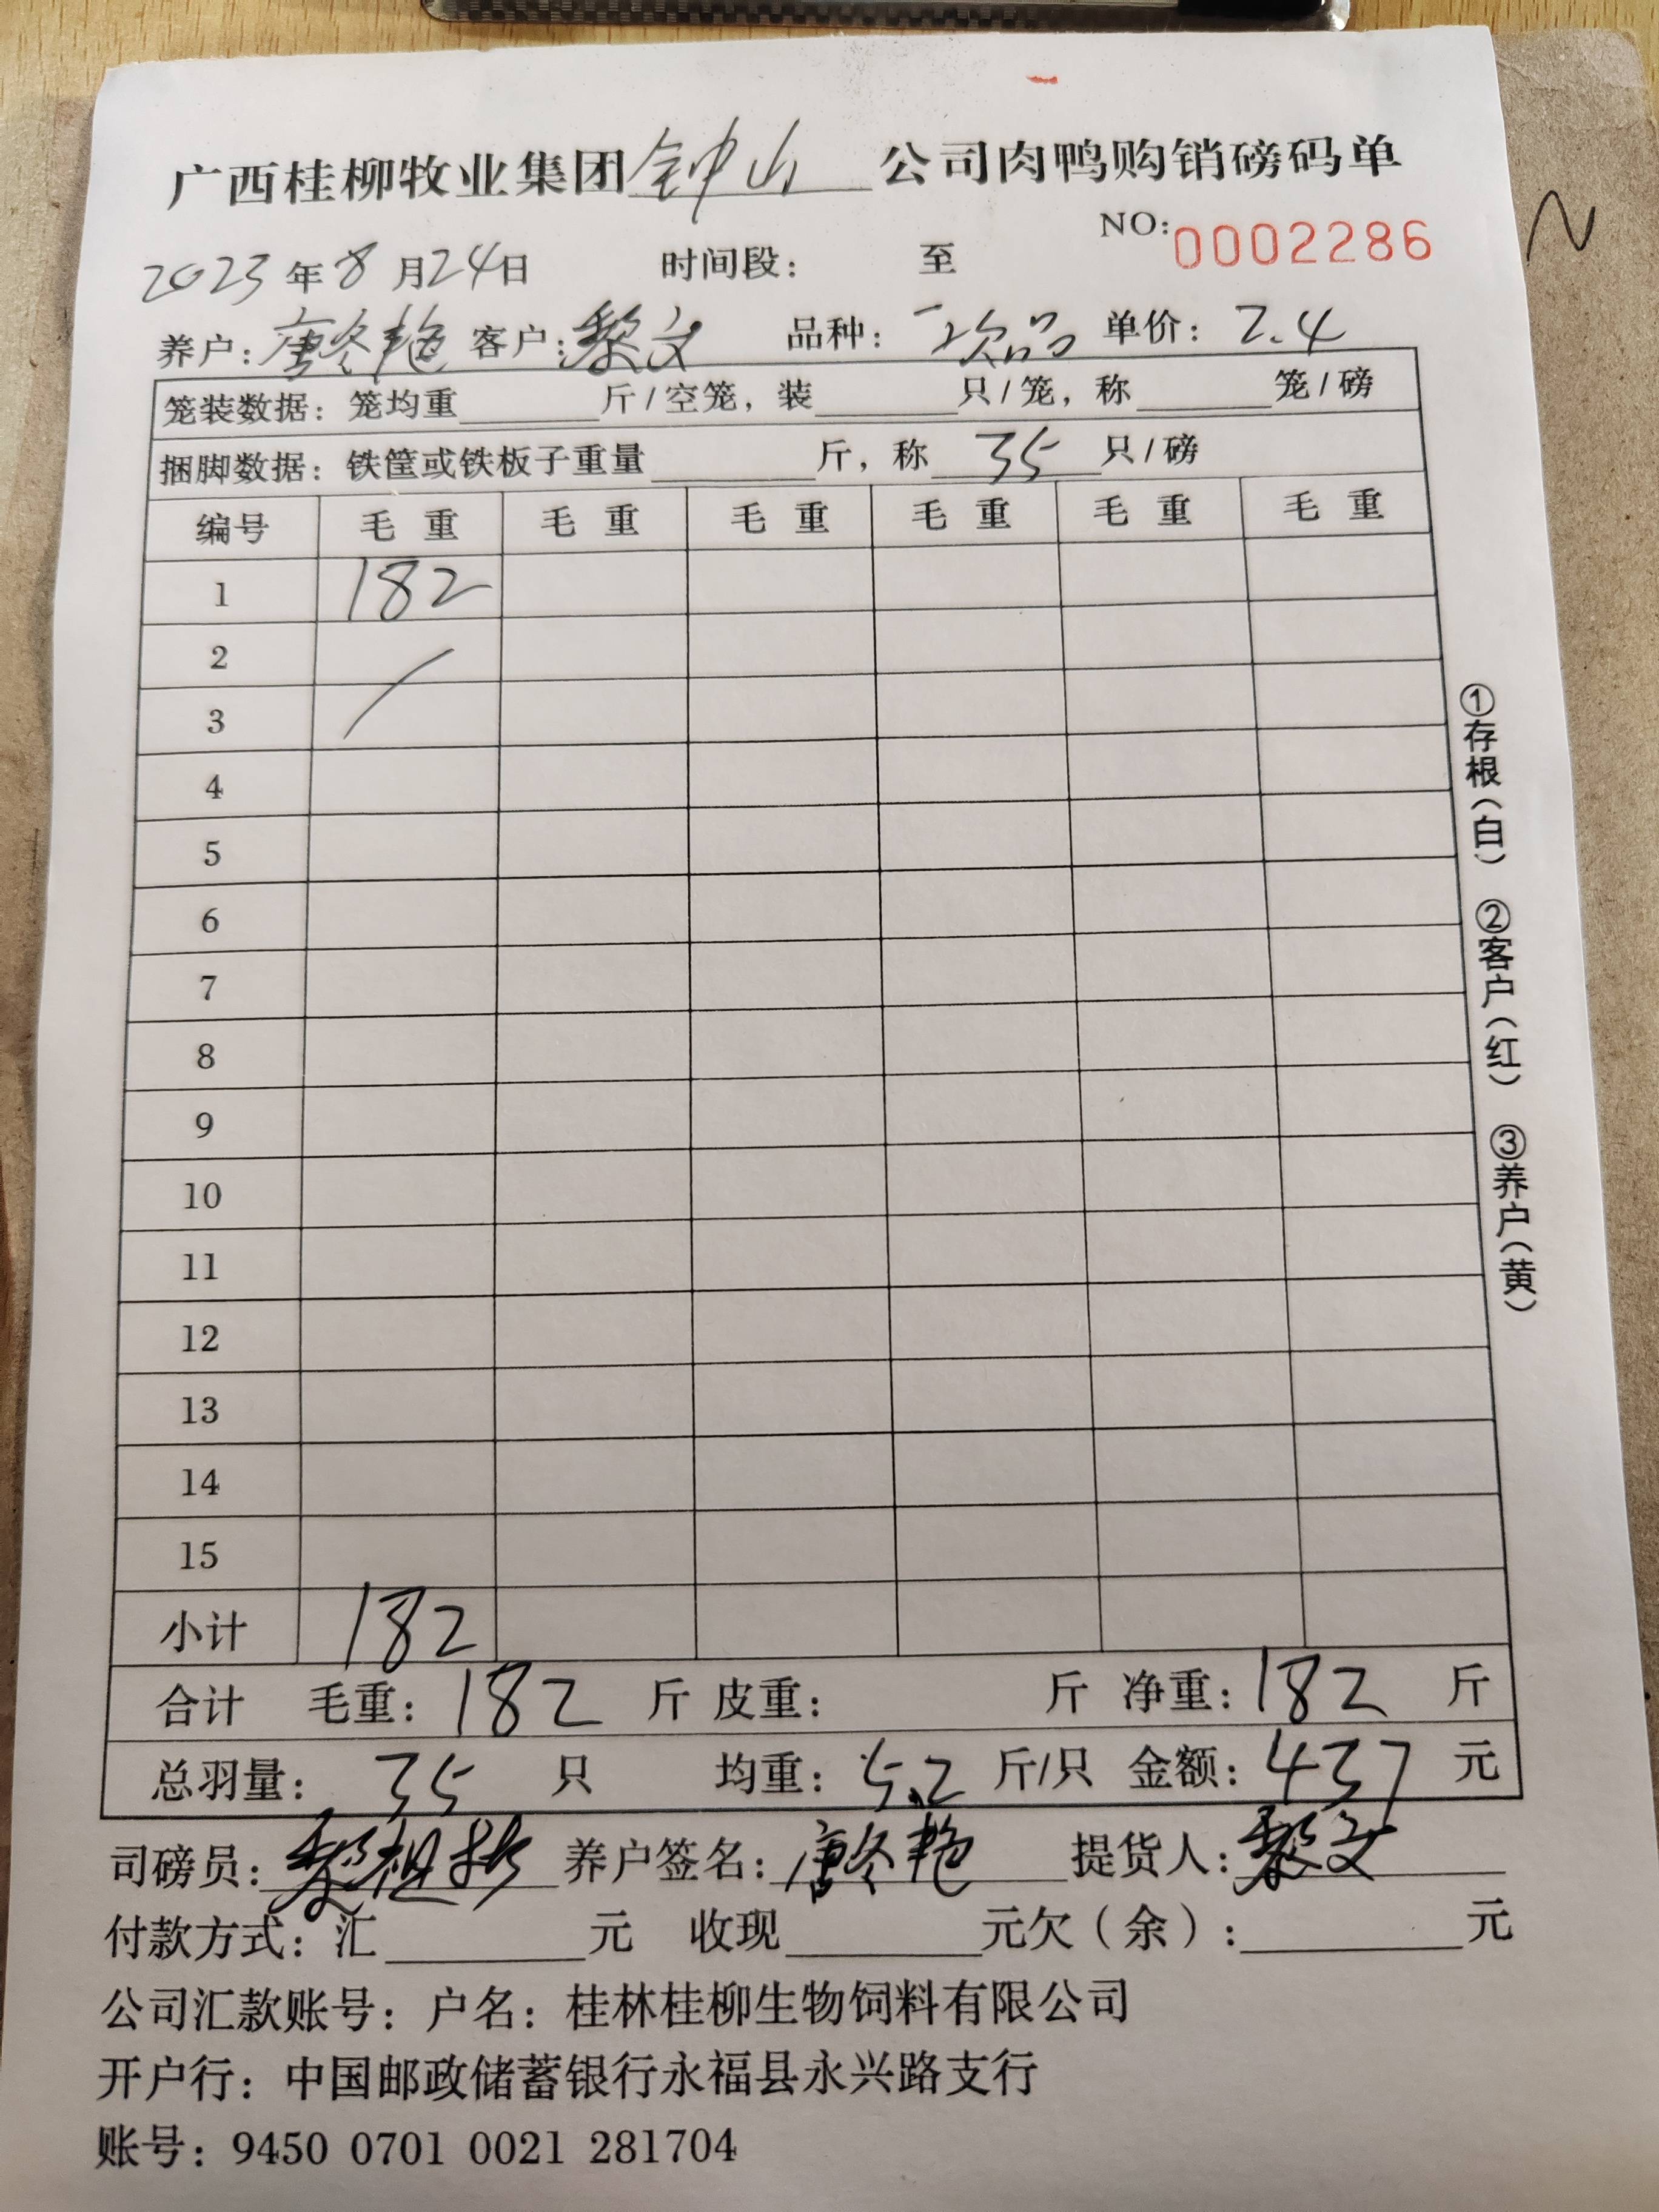 广西桂柳牧业集团钟山公司肉鸭购销磅码单
NO:0002286
2023年8月24日 时间段: 至
养户:唐冬艳 客户:黎文 品种:次品 单价:2.4
笼装数据:笼均重 斤/空笼,装 只/笼,称 笼/磅
捆脚数据:铁筐或铁板子重量 斤,称 35 只/磅
编号 毛重 毛重 毛重 毛重 毛重 毛重
1 182
2
3
4
5
6
7
8
9
10
11
12
13
14
15
小计 182
合计 毛重:182 斤 皮重: 斤 净重:182 斤
总羽量: 35 只 均重:5.2 斤/只 金额:437 元
司磅员: 养户签名:唐冬艳 提货人:黎文
付款方式:汇 元 收现 元欠(余): 元
公司汇款账号:户名:桂林桂柳生物饲料有限公司
开户行:中国邮政储蓄银行永福县永兴路支行
账号:9450 0701 0021 281704
①存根(白) ②客户(红) ③养户(黄)
N